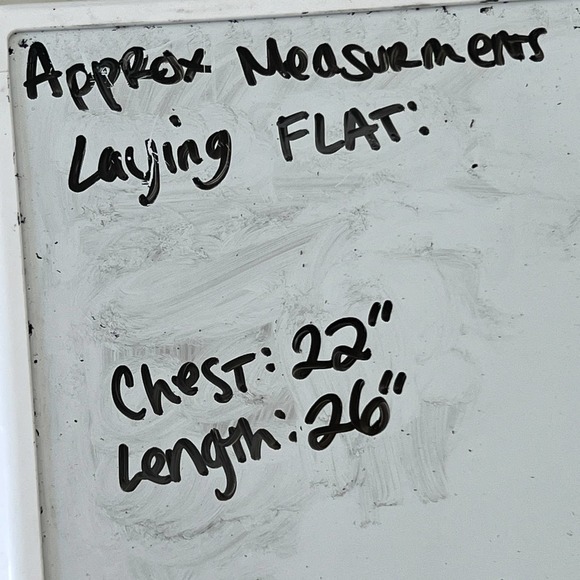 Approx Measurments
Laying FLAT:
Chest: 22"
Length: 26"